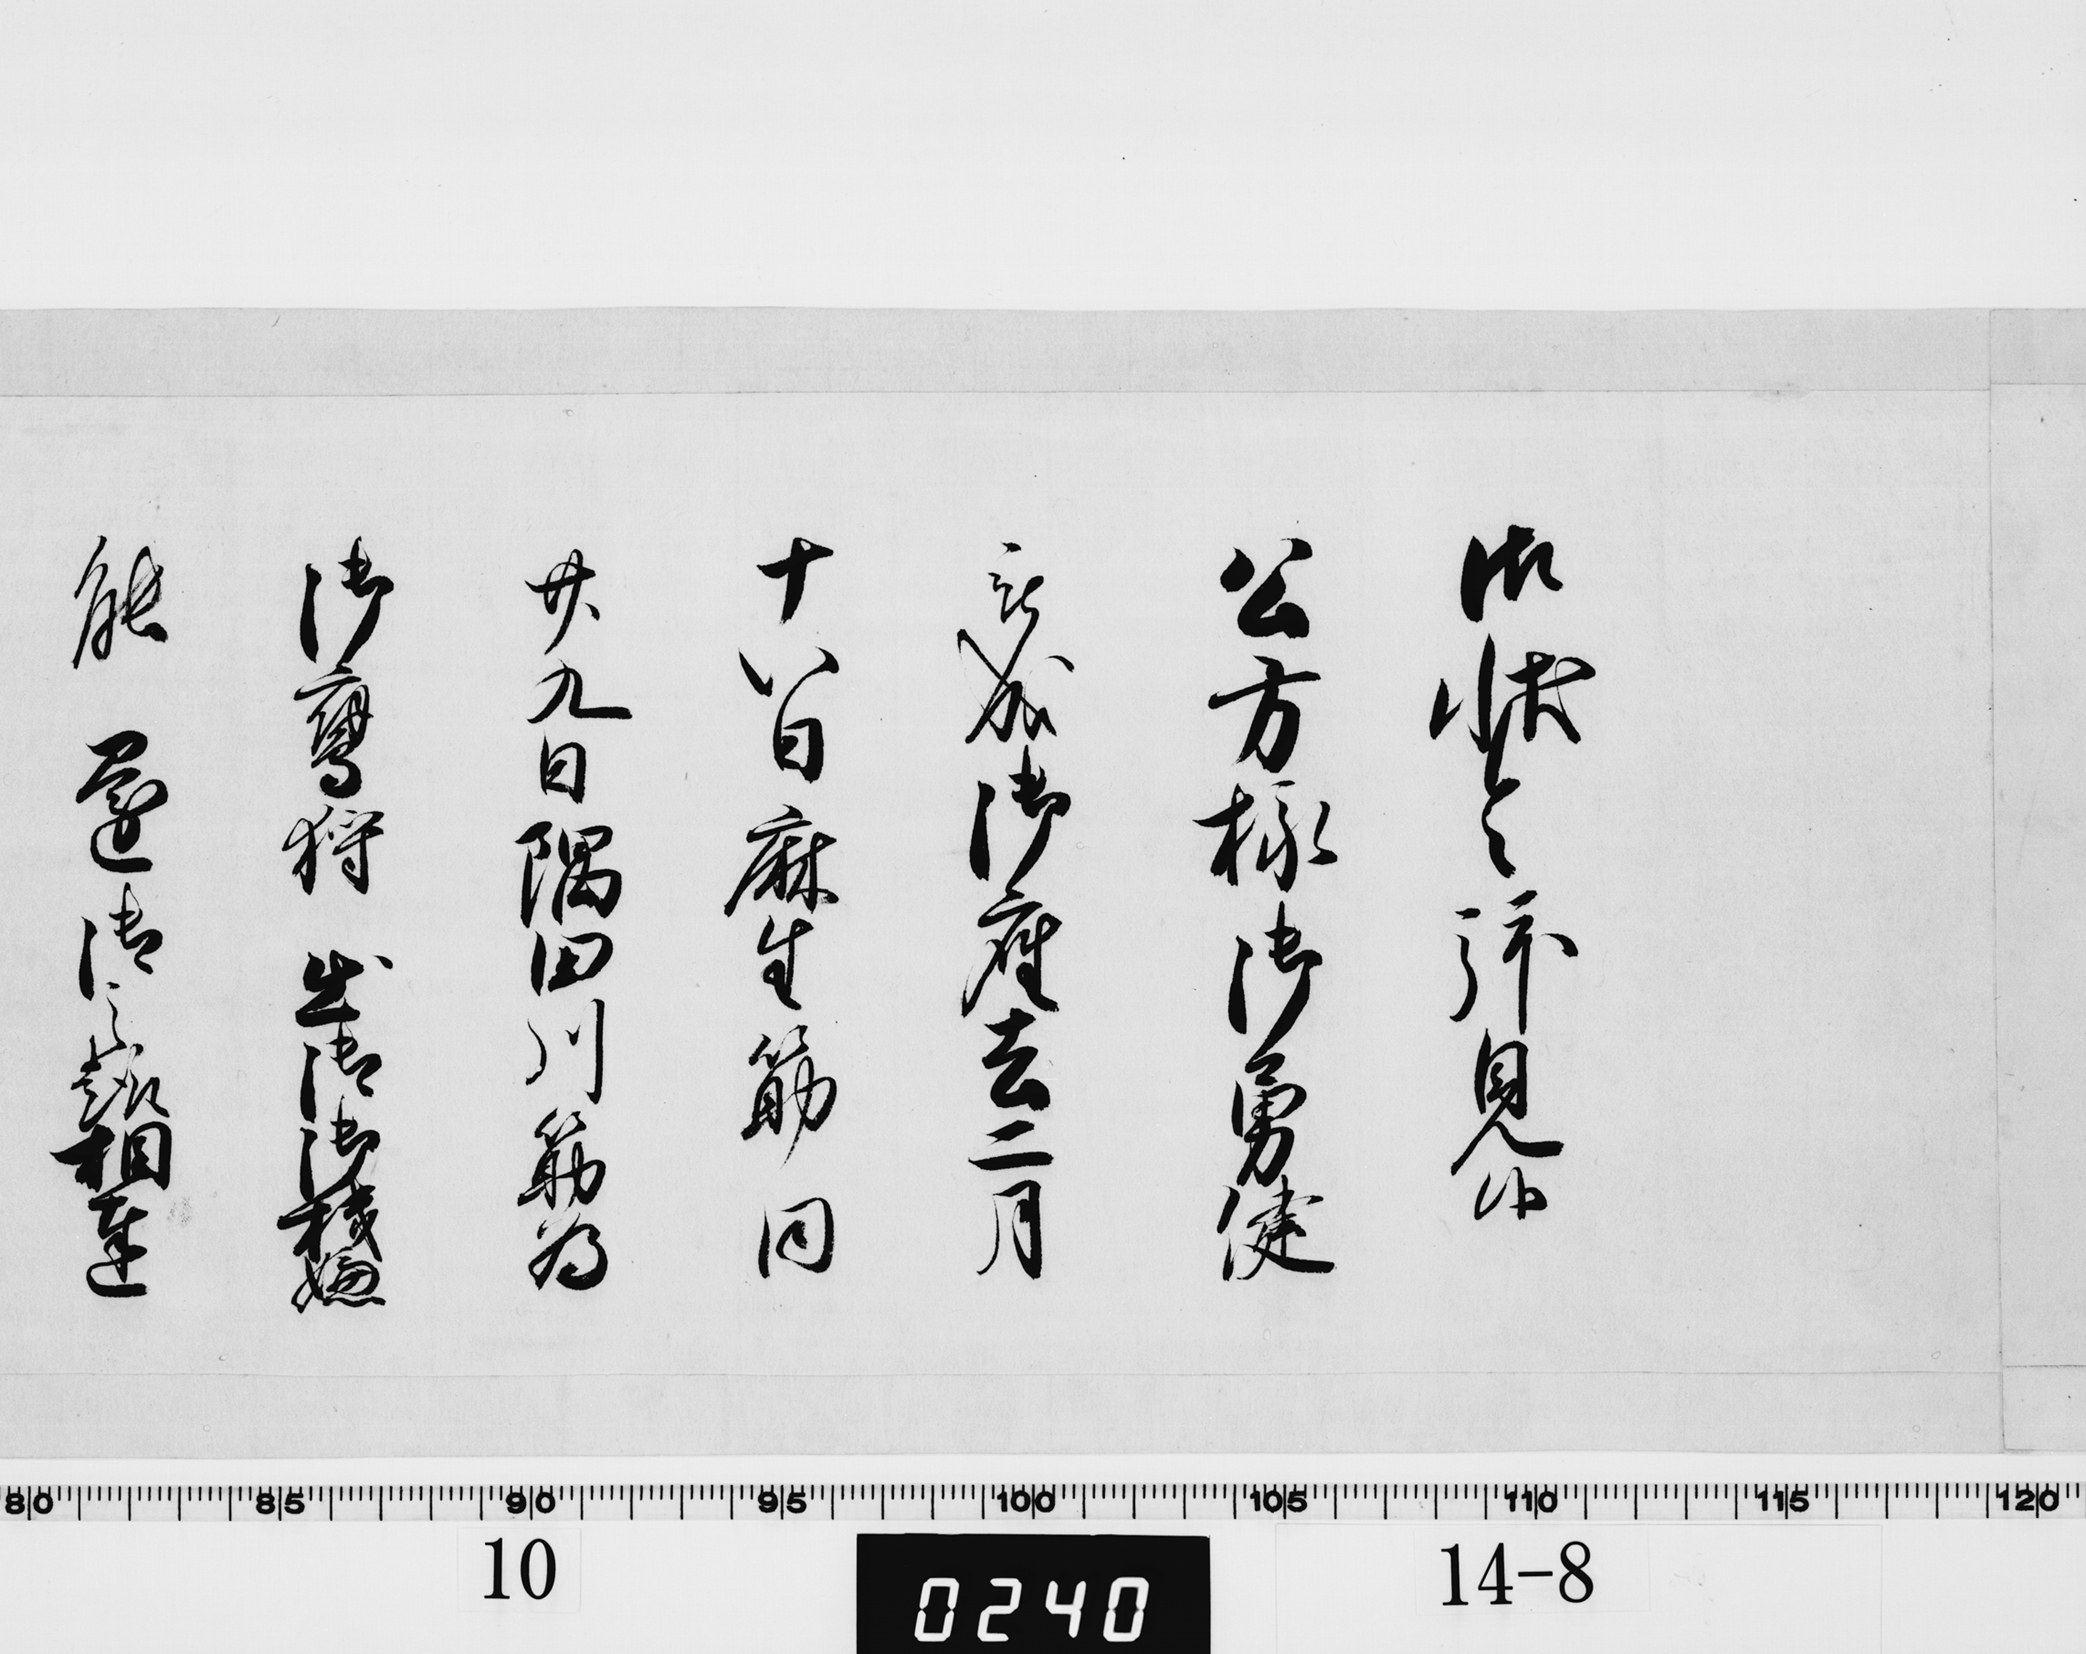 御状令拝見候
公方様御勇健
被成御座去二月
十八日麻生筋同
廿九日隅田川筋為
御鷹狩　出御御機嫌
能　還御之趣相達
80 85 90 95 100 105 110 115 120
10 0240 14-8